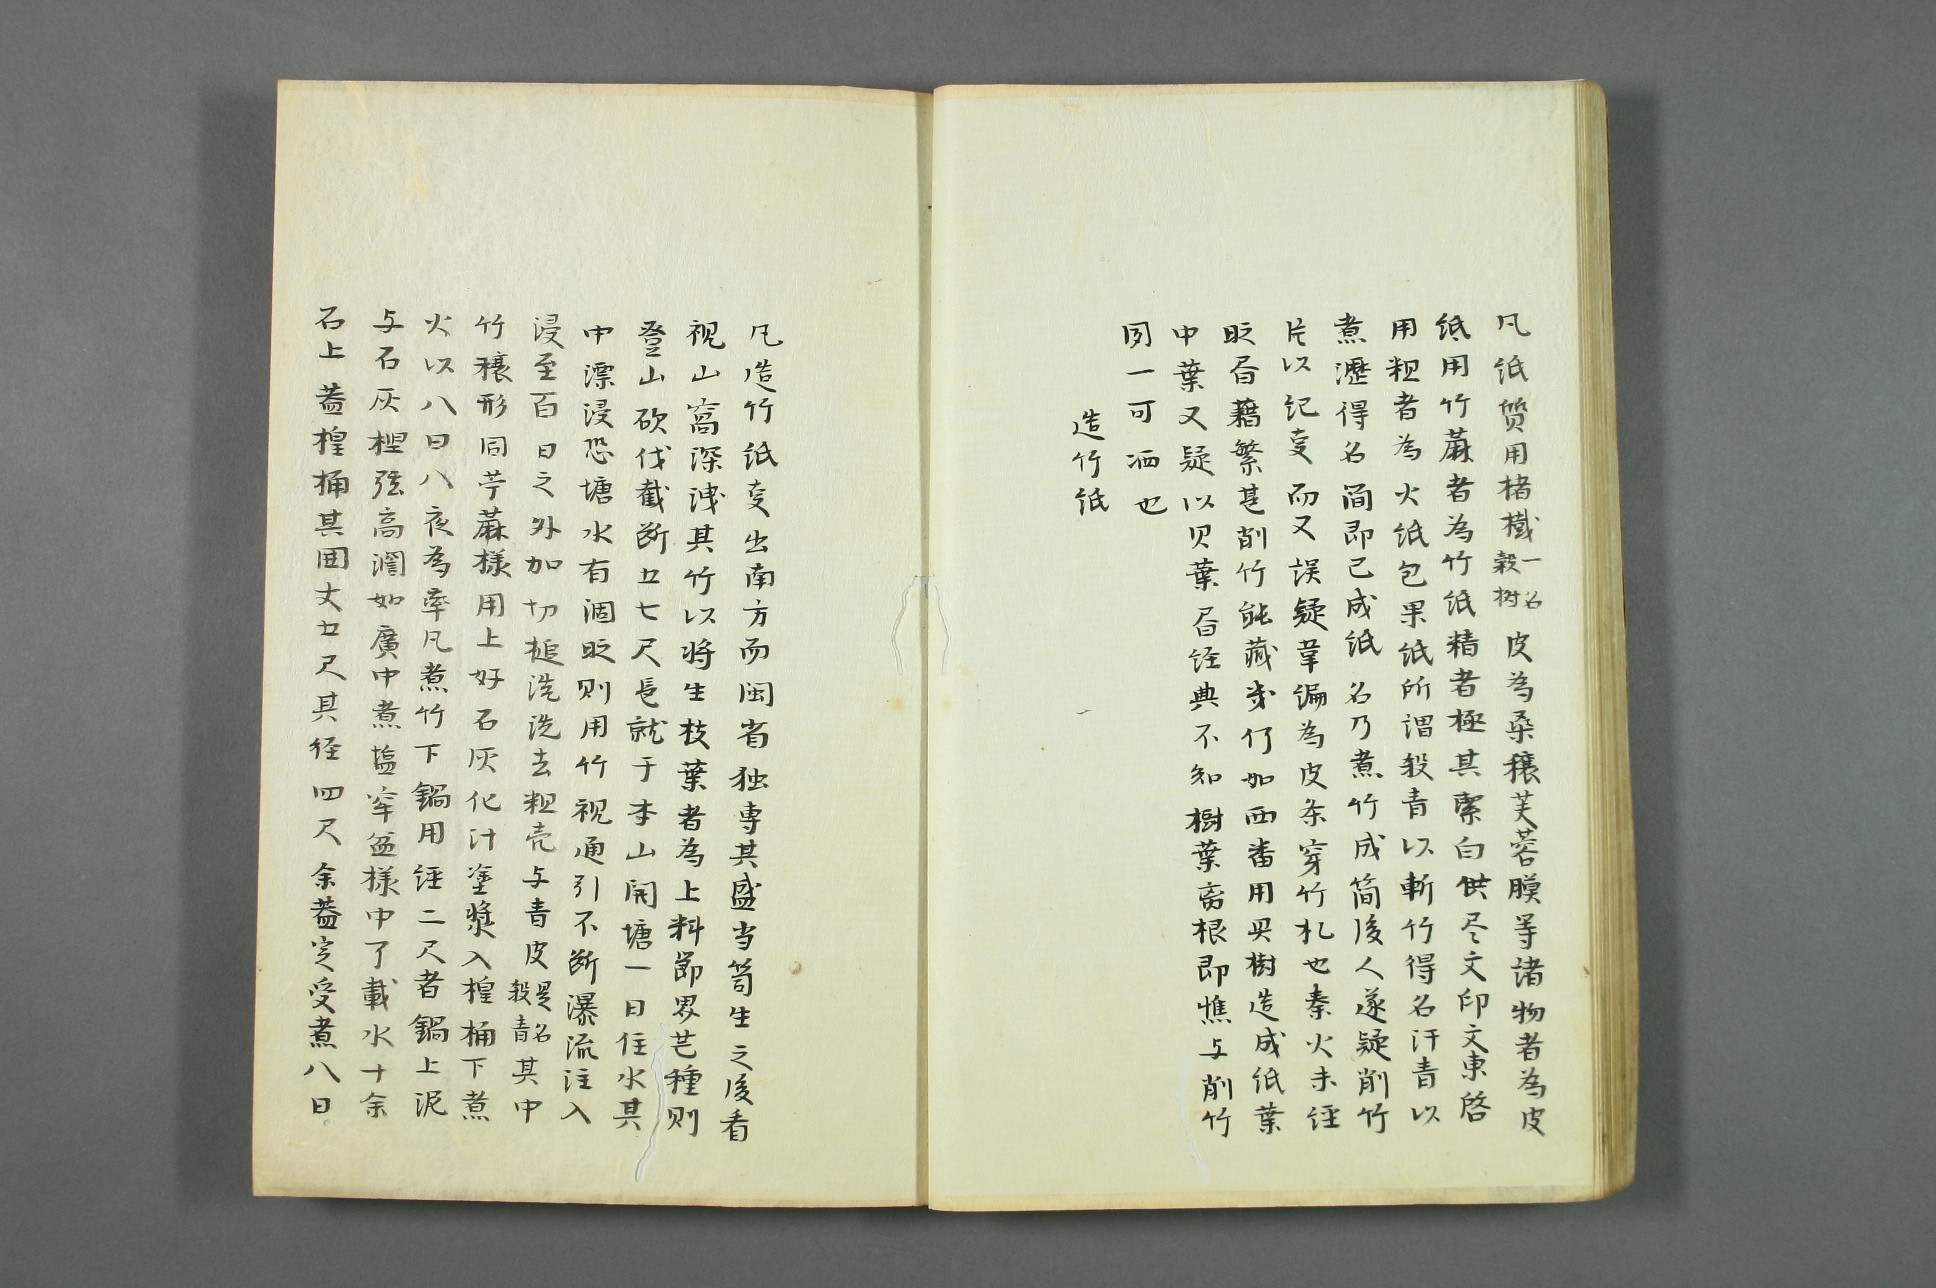 凡紙貭用楮樹一名穀树皮為桑穰芙蓉膜等諸物者為皮
紙用竹蔴者為竹紙精者極其潔白供尽文印文柬啓
用粗者為火紙包果紙所謂殺青以斬竹得名汗青以
煮瀝得名简即已成紙名乃煮竹成简後人遂疑削竹
片以紀事而又誤疑韋编為皮条穿竹札也秦火未经
时書籍繁甚削竹能藏幾何如西番用贝树造成纸葉
中葉又疑以贝葉書经典不知樹葉离根即憔与削竹
同一可洒也
造竹纸
凡造竹紙事出南方而闽省独専其盛当笋生之後看
视山窝深浅其竹以将生枝葉者為上料節界芒種则
登山砍伐截断五七尺長就于本山開塘一日住水其
中漂浸恐塘水有涸时则用竹視通引不断瀑流注入
浸至百日之外加切槌洗洗去粗壳与青皮是名殺青其中
竹穰形同苧蔴様用上好石灰化汁塗漿入楻桶下煮
火以八日八夜為率凡煮竹下鍋用经二尺者鍋上泥
与石灰捏弦高濶如廣中煮塩牢盆様中了載水十余
石上蓋楻桶其囲丈五尺其径四尺余蓋定受煮八日